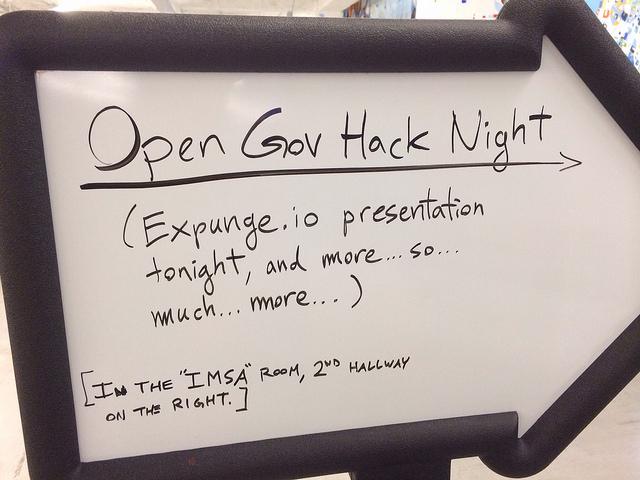 Open Gov Hack Night
(Expunge.io presentation
tonight, and more... so...
much... more...)
[IN THE "IMSA" ROOM, 2ND HALLWAY
ON THE RIGHT.]